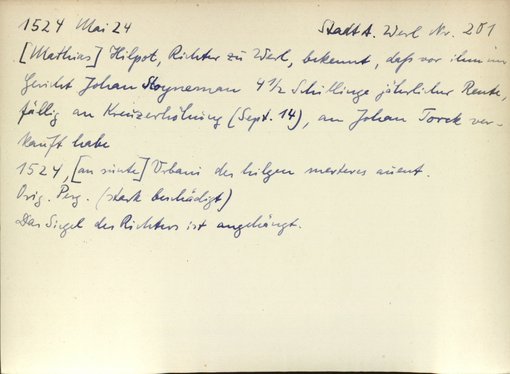 1524 Mai 24 Stadt A. Werl Nr. 201
[Mathias] Hilpot, Richter zu Werl, bekennt, daß vor ihm im
Gericht Johan Stoyneman 4 1/2 Schillinge jährlicher Rente,
fällig an Kreuzerhöhung (Sept. 14), an Johan Torck ver-
kauft habe
1524, [an sünte] Urbani des hilgen merteres avent.
Orig. Perg. (stark beschädigt)
Das Siegel des Richters ist angehängt.